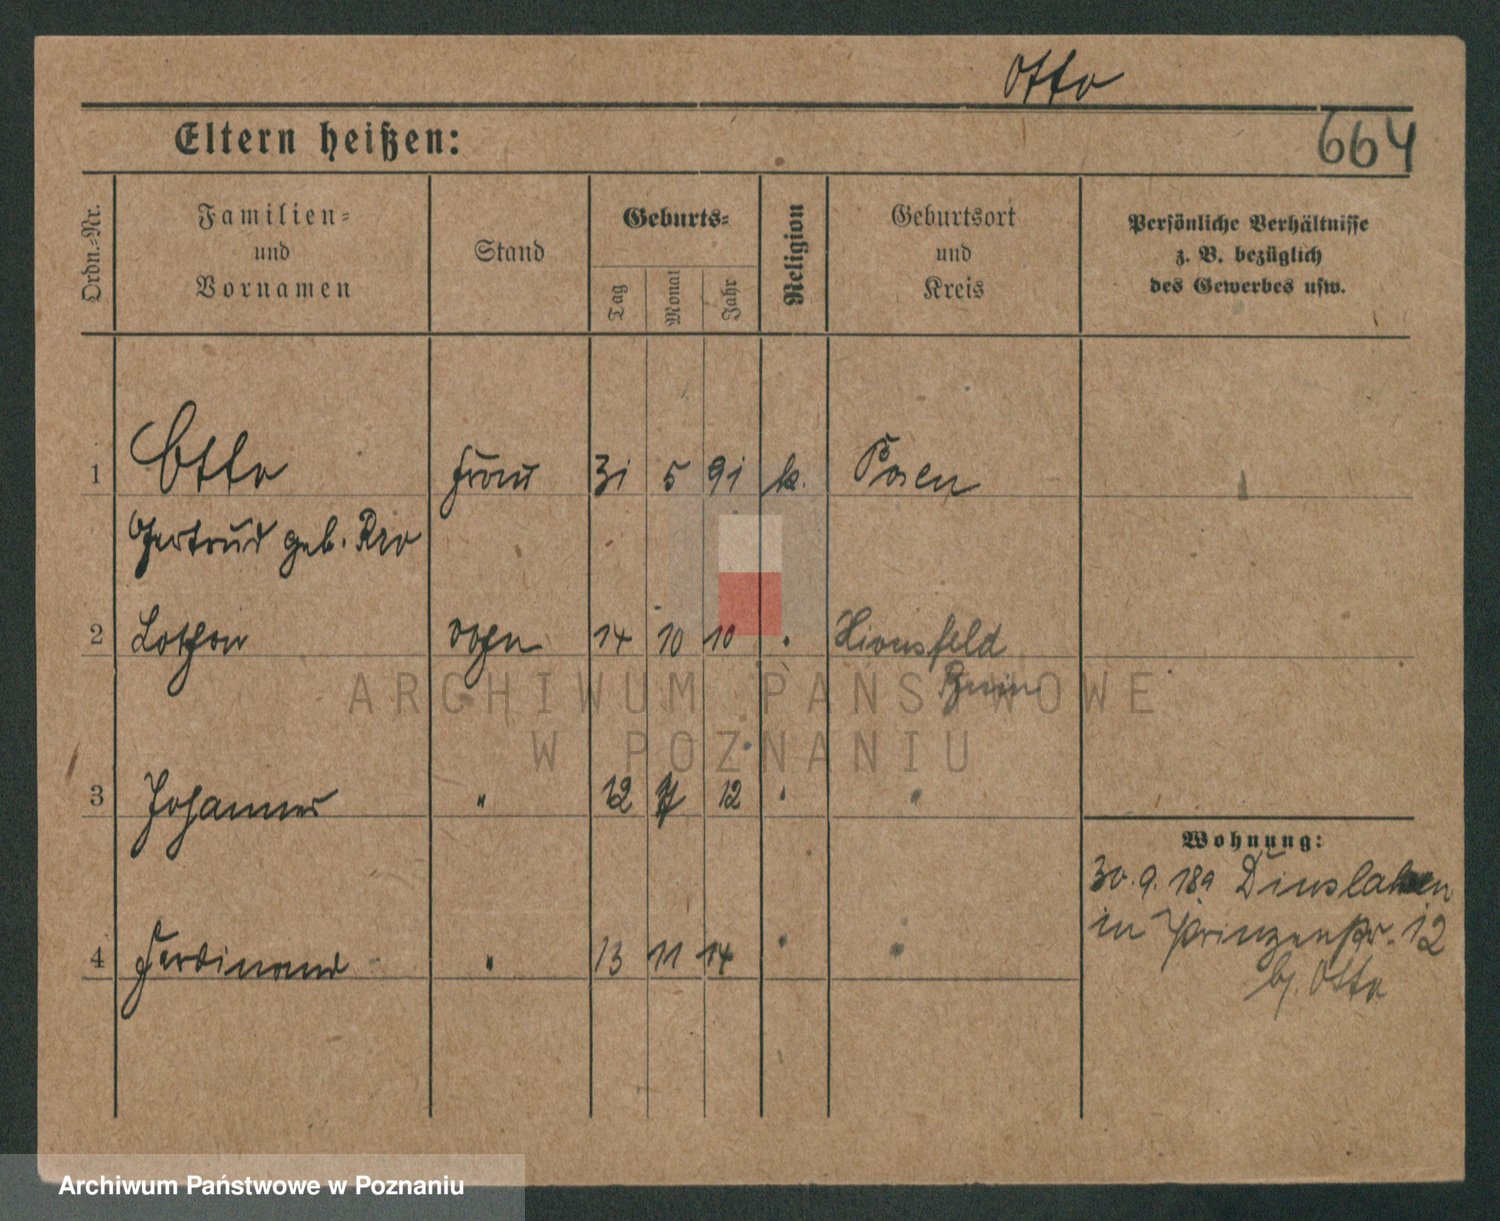 Otto
Eltern heißen:
664
Ordn.=Nr.
Familien=
und
Vornamen
Stand
Geburts=
Tag
Monat
Jahr
Religion
Geburtsort
und
Kreis
Persönliche Verhältnisse
z. B. bezüglich
des Gewerbes usw.
1 Otto Frau 31 5 91 k. Posen
Gertrud geb.
2 Lothar Sohn 14 10 10 Hirnsfeld
3 Johannes " 12 7 12 "
4 Ferdinand " 13 11 14 " "
Wohnung:
30. 9. 18 Dinslaken
in Prinzenstr. 12
b/. Otto
ARCHIWUM PAŃSTWOWE
W POZNANIU
Archiwum Państwowe w Poznaniu